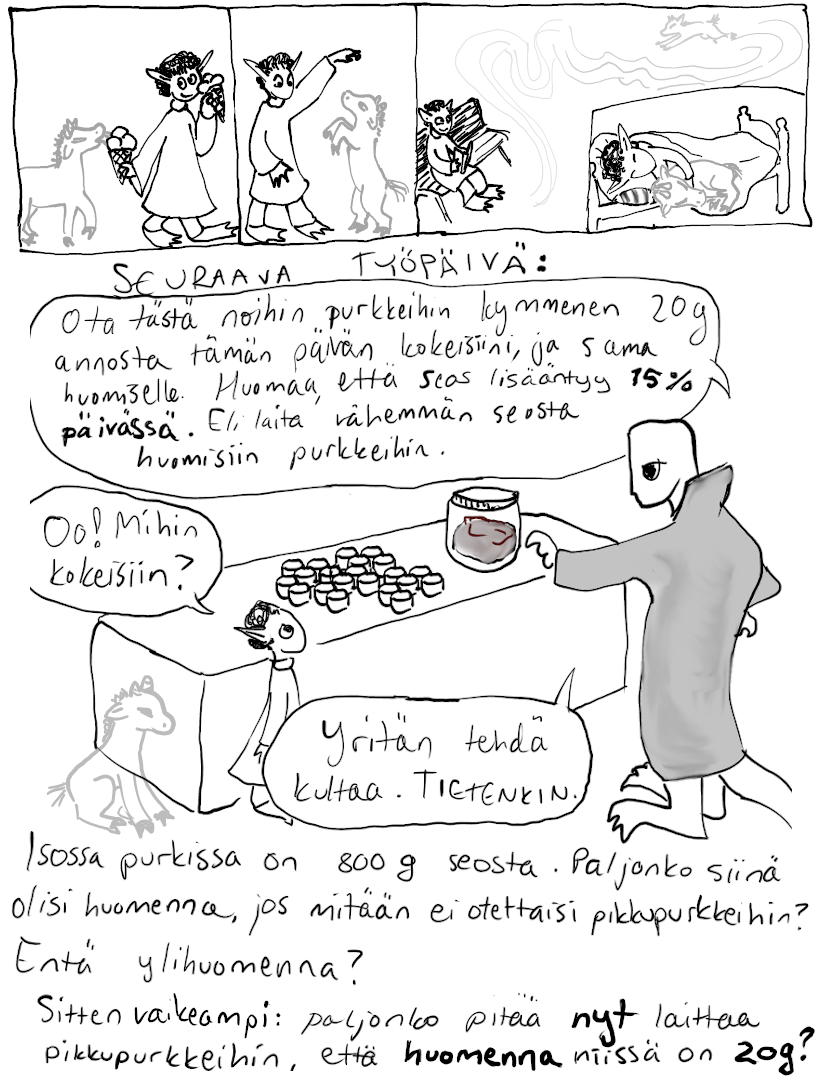 SEURAAVA TYÖPÄIVÄ:
Ota tästä noihin purkkeihin kymmenen 20g
annosta tämän päivän kokeisiini, ja sama
huomiselle. Huomaa, että seos lisääntyy 15%
päivässä. Eli laita vähemmän seosta
huomisiin purkkeihin.
Oo! Mihin
kokeisiin?
Yritän tehdä
kultaa. TIETENKIN.
Isossa purkissa on 800 g seosta. Paljonko siinä
olisi huomenna, jos mitään ei otettaisi pikkupurkkeihin?
Entä ylihuomenna?
Sitten vaikeampi: paljonko pitää nyt laittaa
pikkupurkkeihin, että huomenna niissä on 20g?